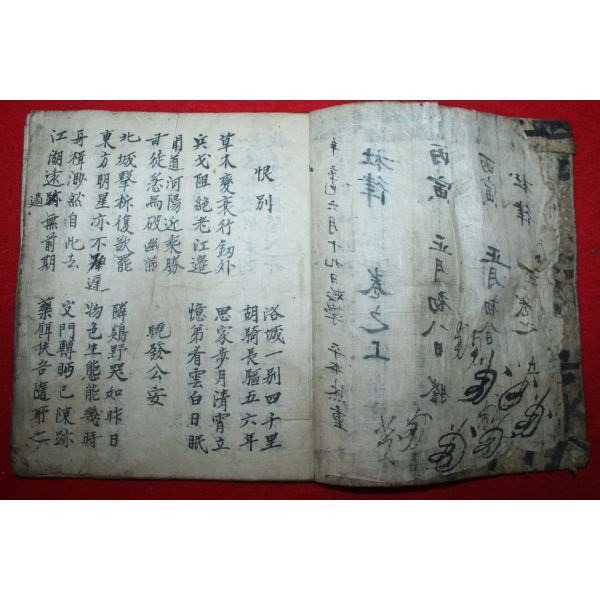 杜律
丙寅 正月初八日
丙寅 正月初八日 謄
杜律 卷之上
恨別
洛城一別四千里
胡騎長驅五六年
草木變衰行釰外
兵戈阻絕老江邊
思家步月清宵立
憶弟看雲白日眠
聞道河陽近乘勝
司徒急為破幽燕
曉發公安
北城擊柝復欲罷
東方明星亦不遲
隣鷄野哭如昨日
物色生態能幾時
舟楫渺然自此去
江湖遠跡無前期
適
出門轉眄已陳跡
藥餌扶吾隨所之